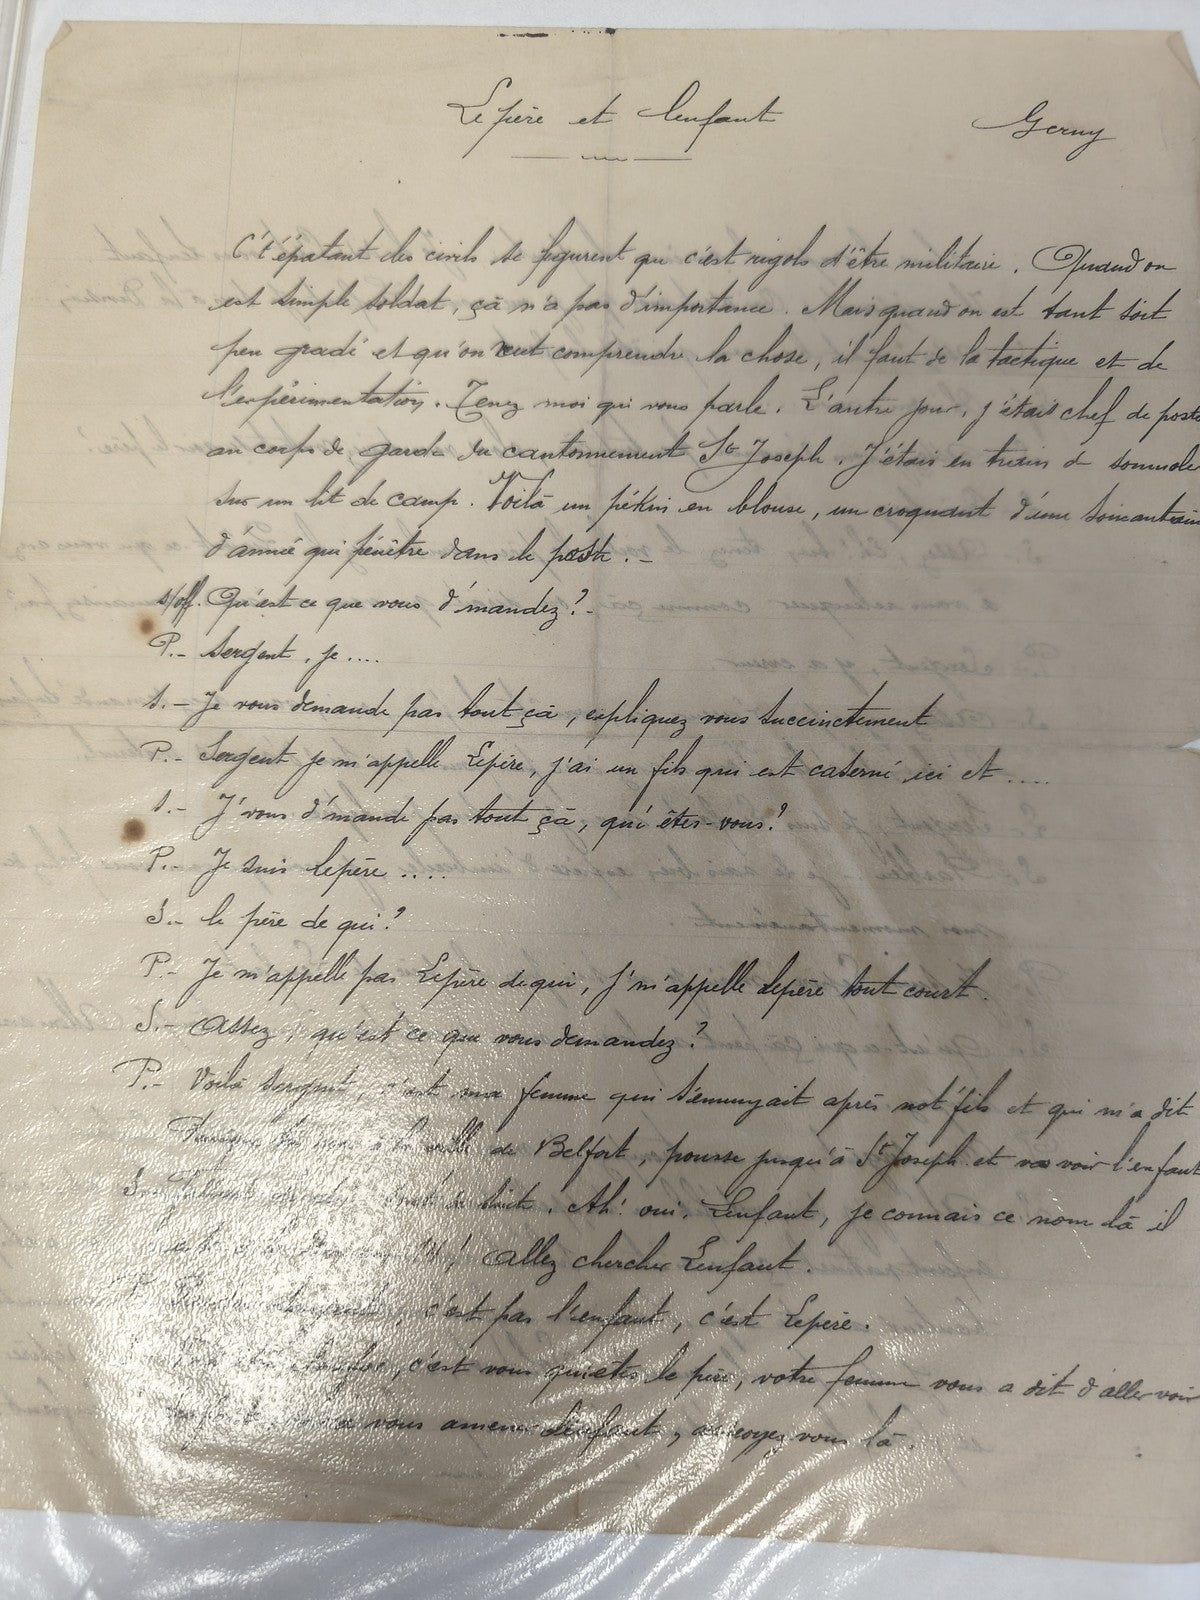 Lepère et Lenfant
Gerny
C't'épatant des civils se figurent que c'est rigolo d'être militaire. Quand on
est simple soldat, çà n'a pas d'importance. Mais quand on est tant soit
peu gradé et qu'on veut comprendre la chose, il faut de la tactique et de
l'expérimentation. Tenez moi qui vous parle. L'autre jour, j'étais chef de poste
au corps de garde du cantonnement St Joseph. J'étais en train de somnoler
sur un lit de camp. Voilà un pékin en blouse, un croquant d'une soixantaine
d'année qui pénètre dans le poste. -
s/off. Qu'est ce que vous d'mandez? -
P. - Sergent, je ....
S. - Je vous demande pas tout çà, expliquez vous succinctement
P. - Sergent je m'appelle Lepère, j'ai un fils qui est caserné ici et ....
S. - J'vous d'mande pas tout çà, qui êtes-vous?
P. - Je suis lepère ....
S. - le père de qui?
P. - Je m'appelle pas Lepère de qui, j'm'appelle Lepère tout court.
S. - Assez, qu'est ce que vous demandez?
P. - Voilà sergent, c'est ma femme qui s'ennuyait après not'fils et qui m'a dit
à la ville de Belfort, pousse jusqu'à St Joseph et vas voir l'enfant
S. - suite. Ah! oui, Lenfant, je connais ce nom là il
est ! Allez chercher Lenfant.
P. , c'est pas l'enfant, c'est Lepère.
, c'est vous qui êtes le père, votre femme vous a dit d'aller voir
vous amener Lenfant, asseoyez vous là.